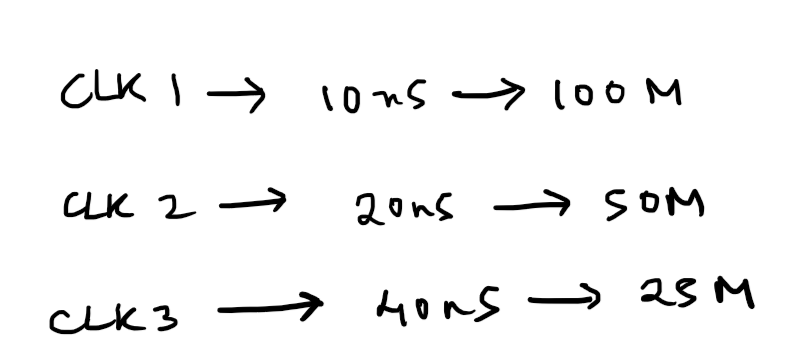 CLK 1 → 10ns → 100M
CLK 2 → 20ns → 50M
CLK3 → 40ns → 25M